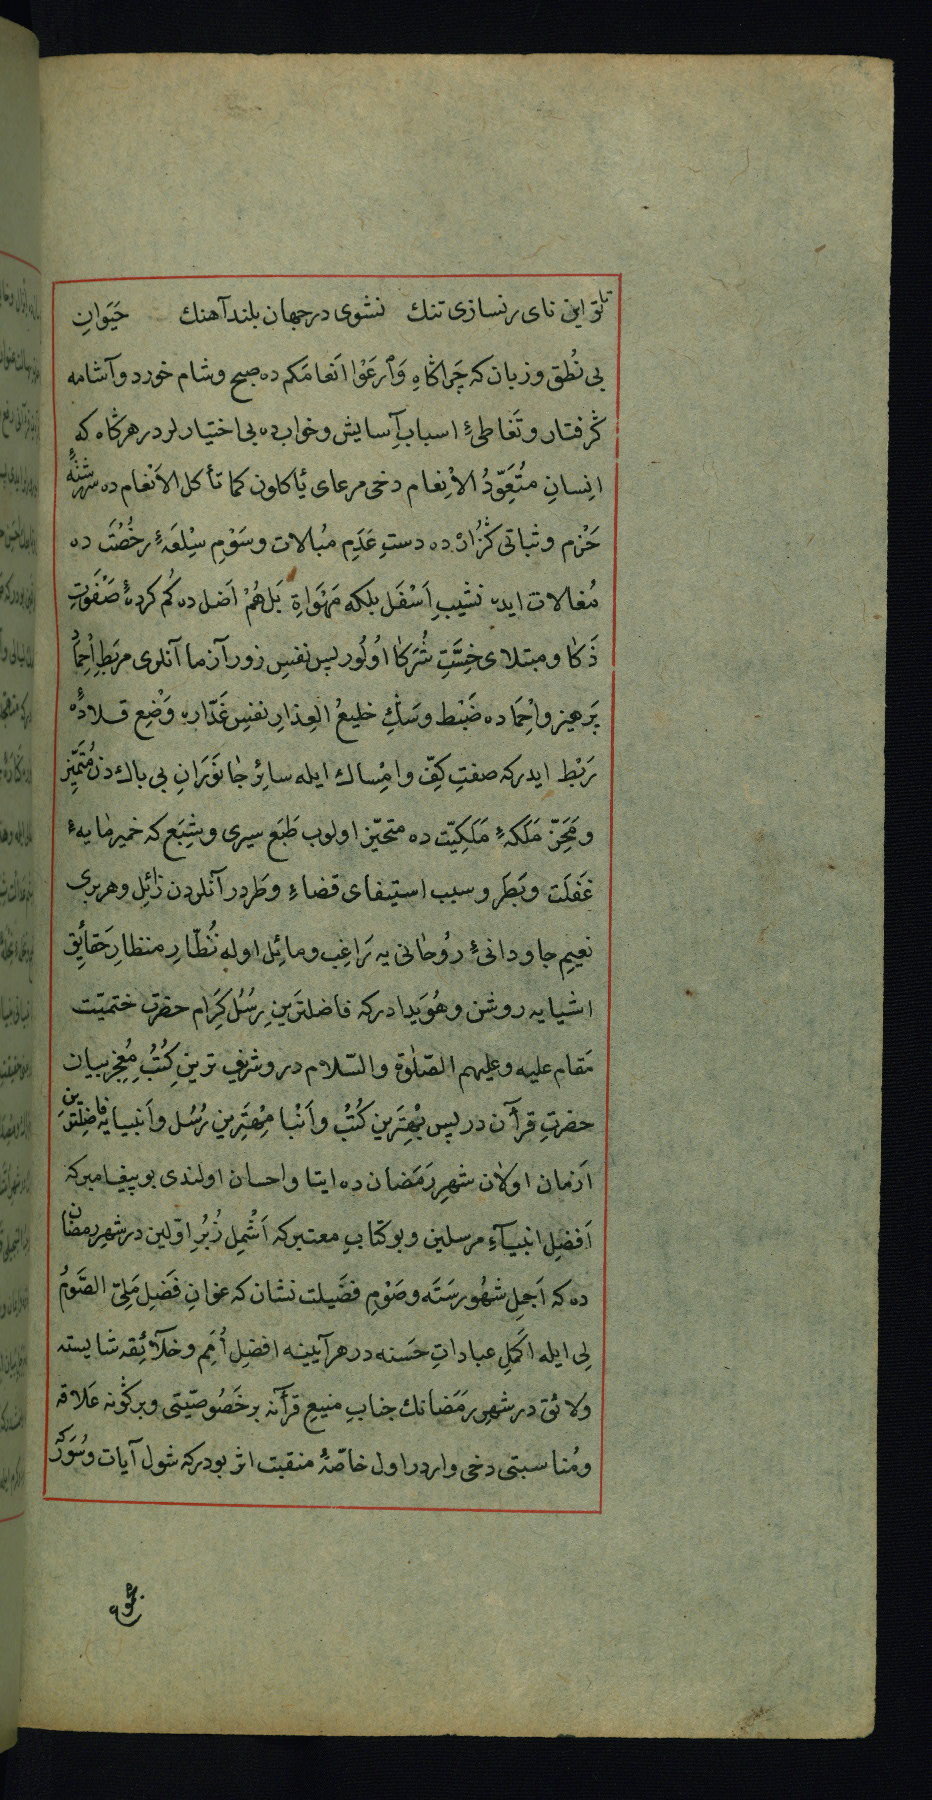 تا تو این نای بر نسازی تنك نشوی در جهان بلند آهنك حَیَوانِ
بی نُطق وزبان که چَراکاهِ وَارعَوْا اَنعامَكم ده صبح وشام خورد وآشامه
کرفتار وتَعاطیٔ اسبابِ آسایش وخوابده بی اختیارلردر هرکاه که
اِنسانِ مُتَعَوِّدُ الاِنعام دخی مرعای یَأکلون کما تأکل الاَنْعام ده سررشتهٔ
حَزم وثباتی کذران ده دستِ عَدَمِ مُبالات وسَوْمِ سِلعَهٔ رخُصْتَ ده
مُغالات ایده نشیبِ اَسْفَل بلکه مَهَواةِ بَل هُمْ اَضل ده کُم کردهٔ صَفْوَتِ
ذَکا ومبتلای خِسَّتِ شُرَکا اُولُور پس نفسِ زور آزما آنلری مربَطِ اِحْماءِ
پَرهیز واِحْماده ضَبْط وسَكِ خلیعُ العِذارِ نفسِ غَدّاره وَضْعِ قلادهٔ
رَبْط ایدرکه صفتِ کفّ وامْساك ایله سائر جانوَرانِ بی باك دن مُتَمَیّز
ومَحِزّ مَلَکهٔ مَلَکیّت ده متحیّز اولوب طَبَع سیری وشِبَع که خمیرمایهٔ
غَفلَت وبَطَر وسبب استیفای قضاءِ وطَردر آنلردن زائل وهربری
نعیمِ جاودانیٔ رُوحانی یه رَاغِب ومائل اوله نُظّارِ منظارِ حَقائِق
اشیایه روشن وهُوَیدادرکه فاضلترَینِ رُسُل کِرَام حضرت ختمیّت
مَقام علیه وعلیهم الصّلوٰة والسّلام در وشریف ترینِ کُتُبِ مُعْجز بیان
حضرتِ قرآن در پس بِهْتَرین کُتُبْ واَنْبا مِهْتَرِین رُسُل واَنبیایه فاضِلترَینِ
اَزمان اولان شهرِ رَمَضان ده ایتا واحسان اولندی بو پیغامبرکه
اَفضلِ انبیآءِ مرسلین وبو کتابِ معتبرکه اَشْملِ زُبُرِ اوّلین در شهرِ رمضان
ده که اَجملِ شهُورِ سَنَه وصَوْمِ فضَیلت نشان که عنوانِ فَضلِ مَلِیّ الصَّومُ
لِی ایله اکمَلِ عباداتِ حَسَنه در هرآیینه افضلِ اُمَم وخلآئِقه شایسته
ولائق در شهرِ رمَضَانك جنابِ منیعِ قرآنه بر خَصُوصیّتی وبر کونه عَلاقه
ومُناسبتی دخی واردر اول خاصّهٔ منقبت اثر بودرکه شول آیات وسُوَرکه